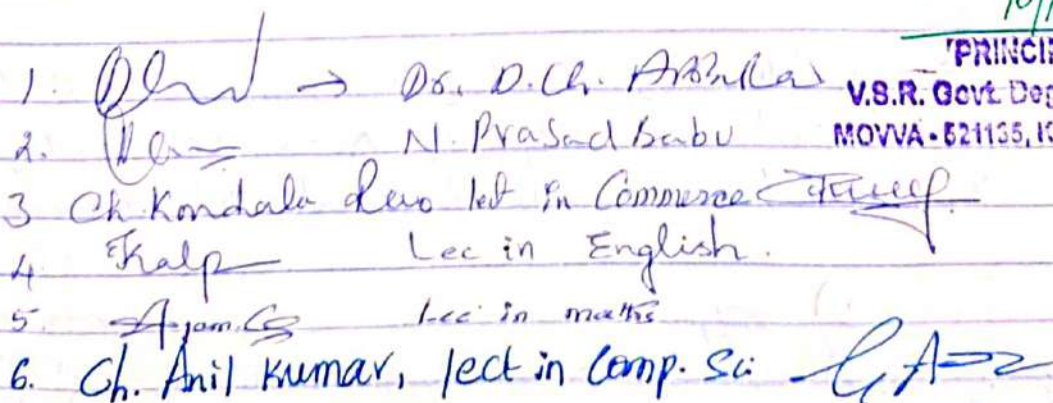 PRINCI
V.S.R. Govt. Deg
MOVVA - 521135, K
1. → Dr. D.Ch.
2. N. Prasad Babu
3 Ch. Kondala Rao lect in Commerce
4. Kalp Lec in English.
5. Lec in maths
6. Ch. Anil Kumar, lect in Comp. Sci